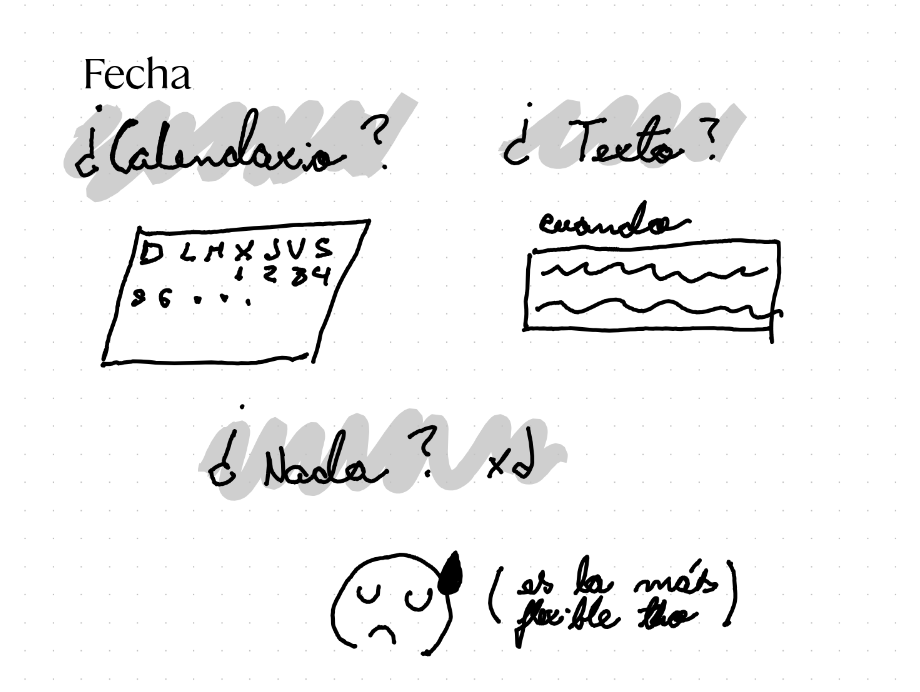 Fecha
¿Calendario?
¿Texto?
D L M X J V S
1 2 3 4
5 6 . . .
cuando
¿Nada? xd
(es la más
flexible tho)